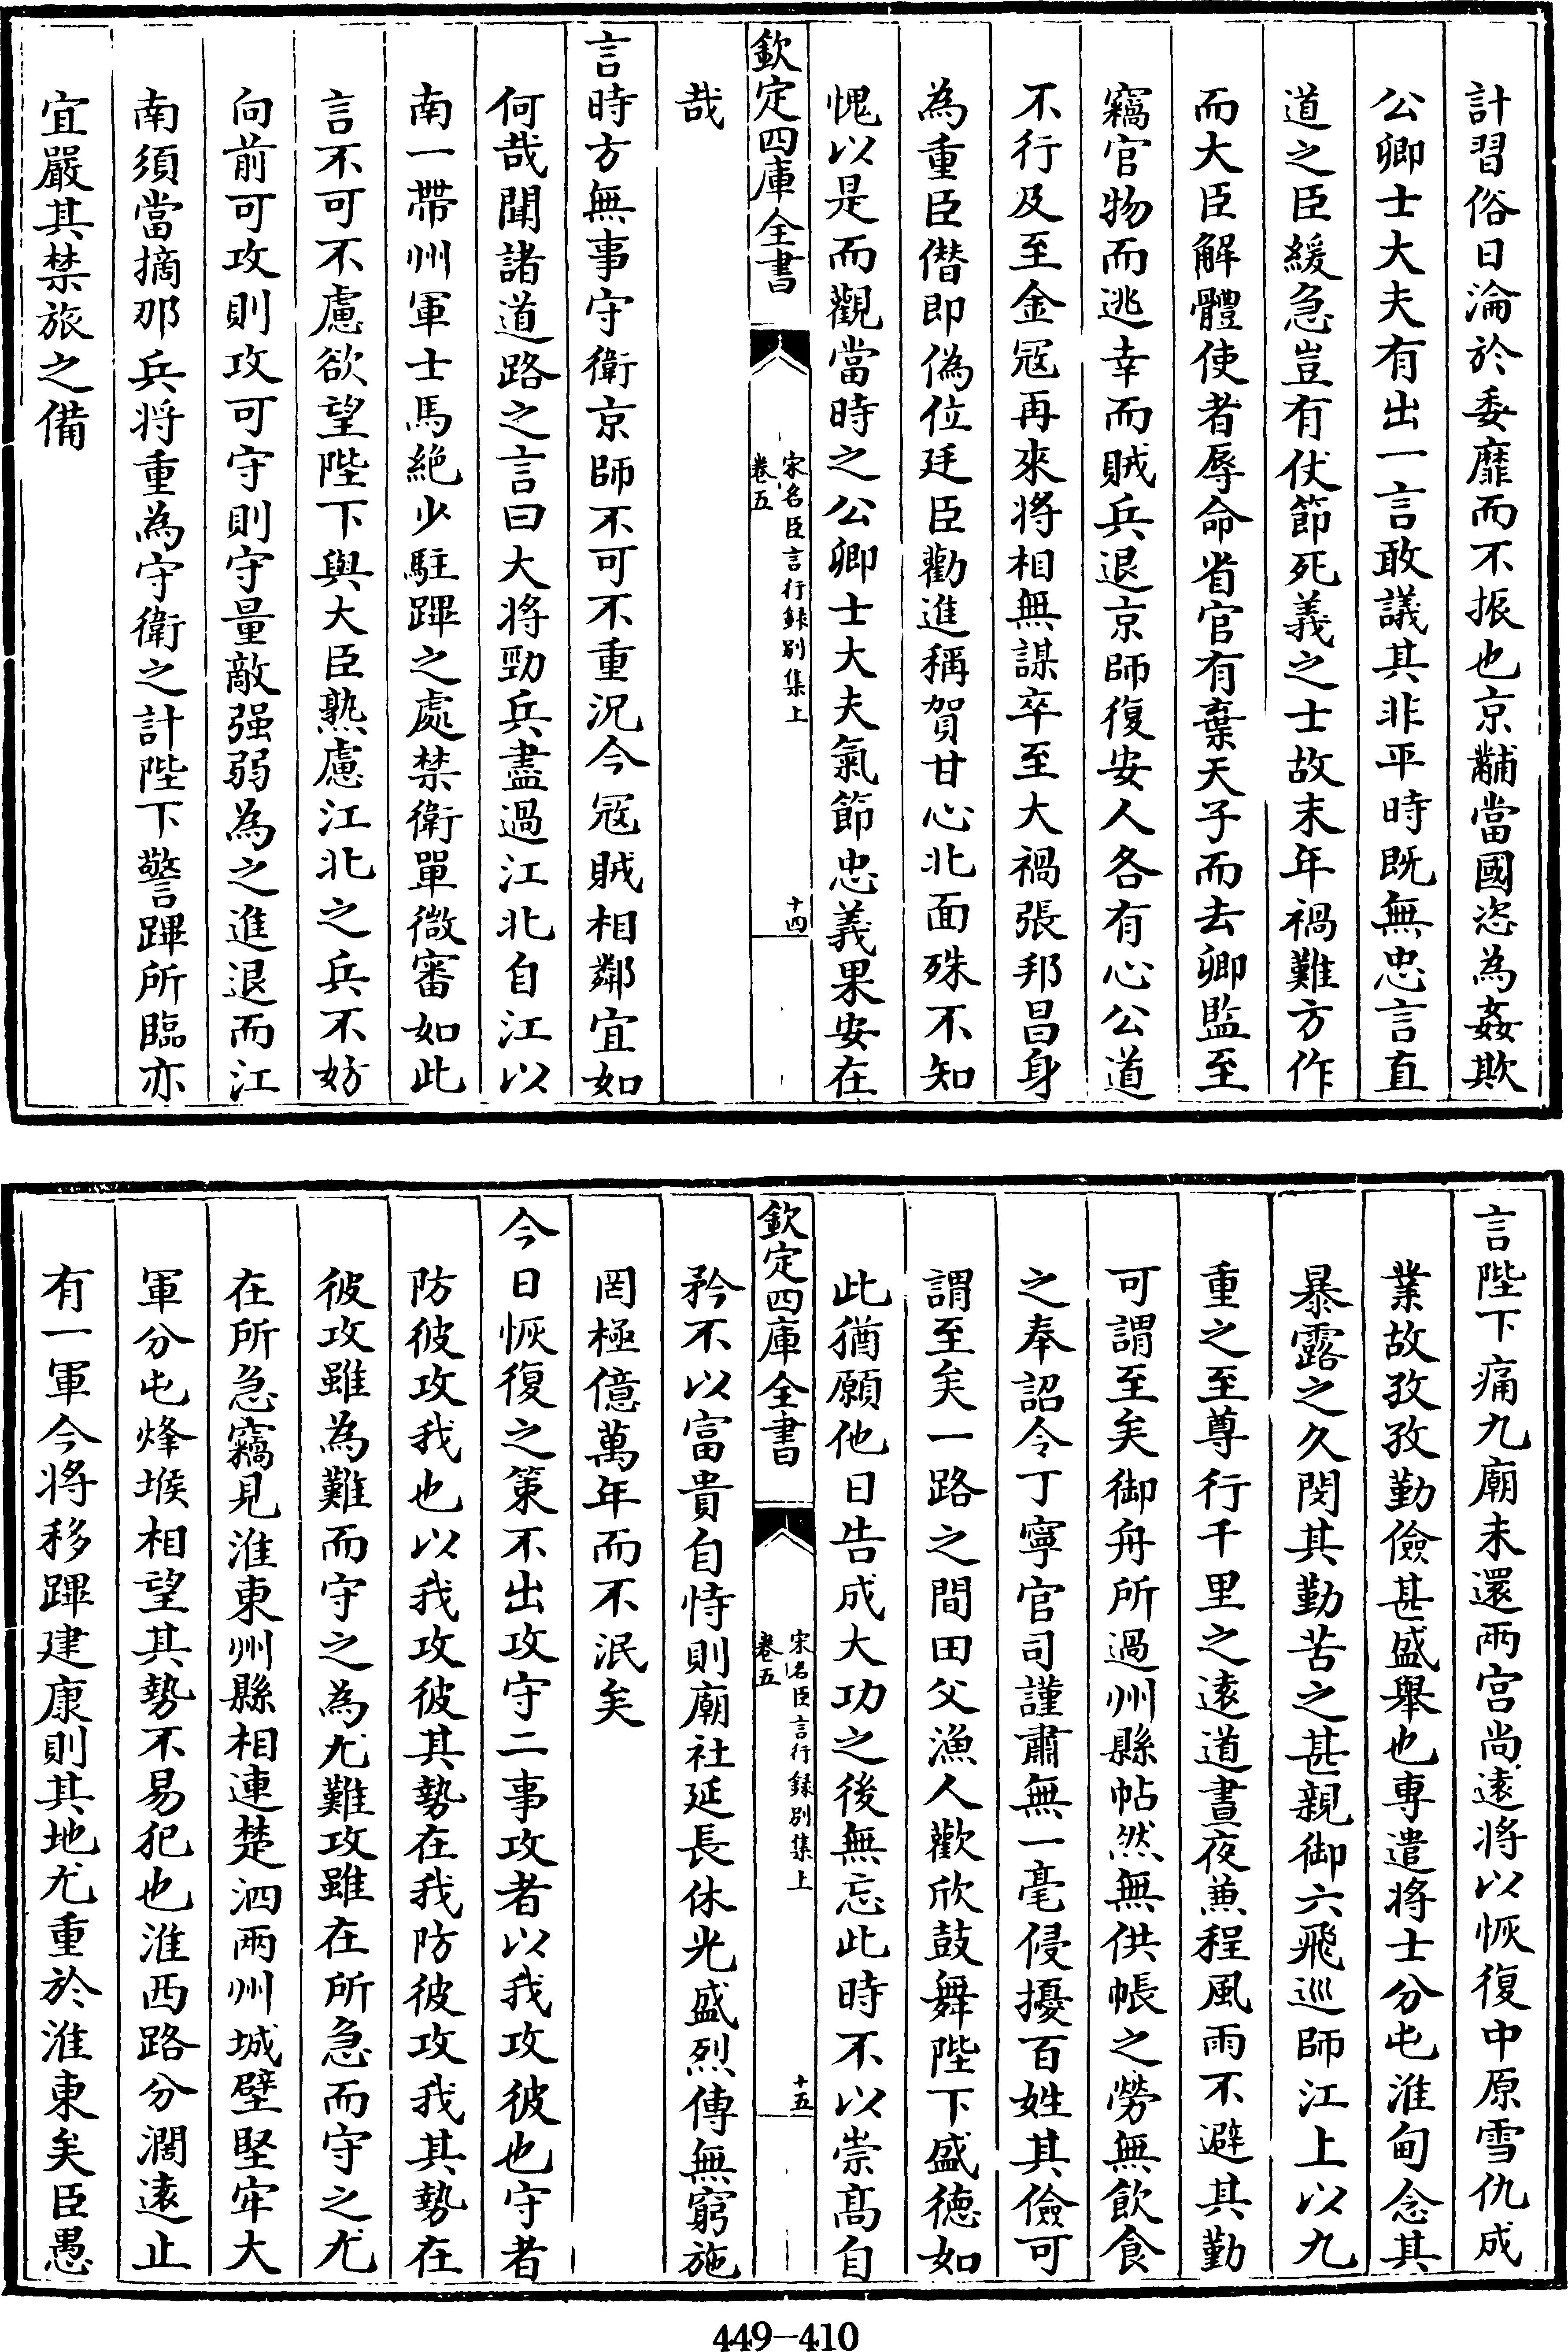 計習俗日淪於委靡而不振也京黼當國恣為姦欺
公卿士大夫有出一言敢議其非平時既無忠言直
道之臣緩急豈有仗節死義之士故末年禍難方作
而大臣解體使者辱命省官有棄天子而去卿監至
竊官物而逃幸而賊兵退京師復安人各有心公道
不行及至金冦再來将相無謀卒至大禍張邦昌身
為重臣僭即偽位廷臣勸進稱賀甘心北面殊不知
愧以是而觀當時之公卿士大夫氣節忠義果安在
欽定四庫全書
宋名臣言行録别集上
卷五
十四
哉
言時方無事守衛京師不可不重況今冦賊相鄰宜如
何哉聞諸道路之言曰大将勁兵盡過江北自江以
南一帶州軍士馬絶少駐蹕之處禁衛單微審如此
言不可不慮欲望陛下與大臣熟慮江北之兵不妨
向前可攻則攻可守則守量敵强弱為之進退而江
南須當摘那兵将重為守衛之計陛下警蹕所臨亦
宜嚴其禁旅之備
言陛下痛九廟未還兩宫尚逺将以恢復中原雪仇成
業故孜孜勤儉甚盛舉也專遣将士分屯淮甸念其
暴露之久閔其勤苦之甚親御六飛巡師江上以九
重之至尊行千里之逺道晝夜兼程風雨不避其勤
可謂至矣御舟所過州縣帖然無供帳之勞無飲食
之奉詔令丁寧官司謹肅無一毫侵擾百姓其儉可
謂至矣一路之間田父漁人歡欣鼓舞陛下盛徳如
此猶願他日告成大功之後無忘此時不以崇髙自
欽定四庫全書
宋名臣言行録别集上
卷五
十五
矜不以富貴自恃則廟社延長休光盛烈傳無窮施
罔極億萬年而不泯矣
今日恢復之策不出攻守二事攻者以我攻彼也守者
防彼攻我也以我攻彼其勢在我防彼攻我其勢在
彼攻雖為難而守之為尤難攻雖在所急而守之尤
在所急竊見淮東州縣相連楚泗兩州城壁堅牢大
軍分屯烽堠相望其勢不易犯也淮西路分濶逺止
有一軍今将移蹕建康則其地尤重於淮東矣臣愚
449-410